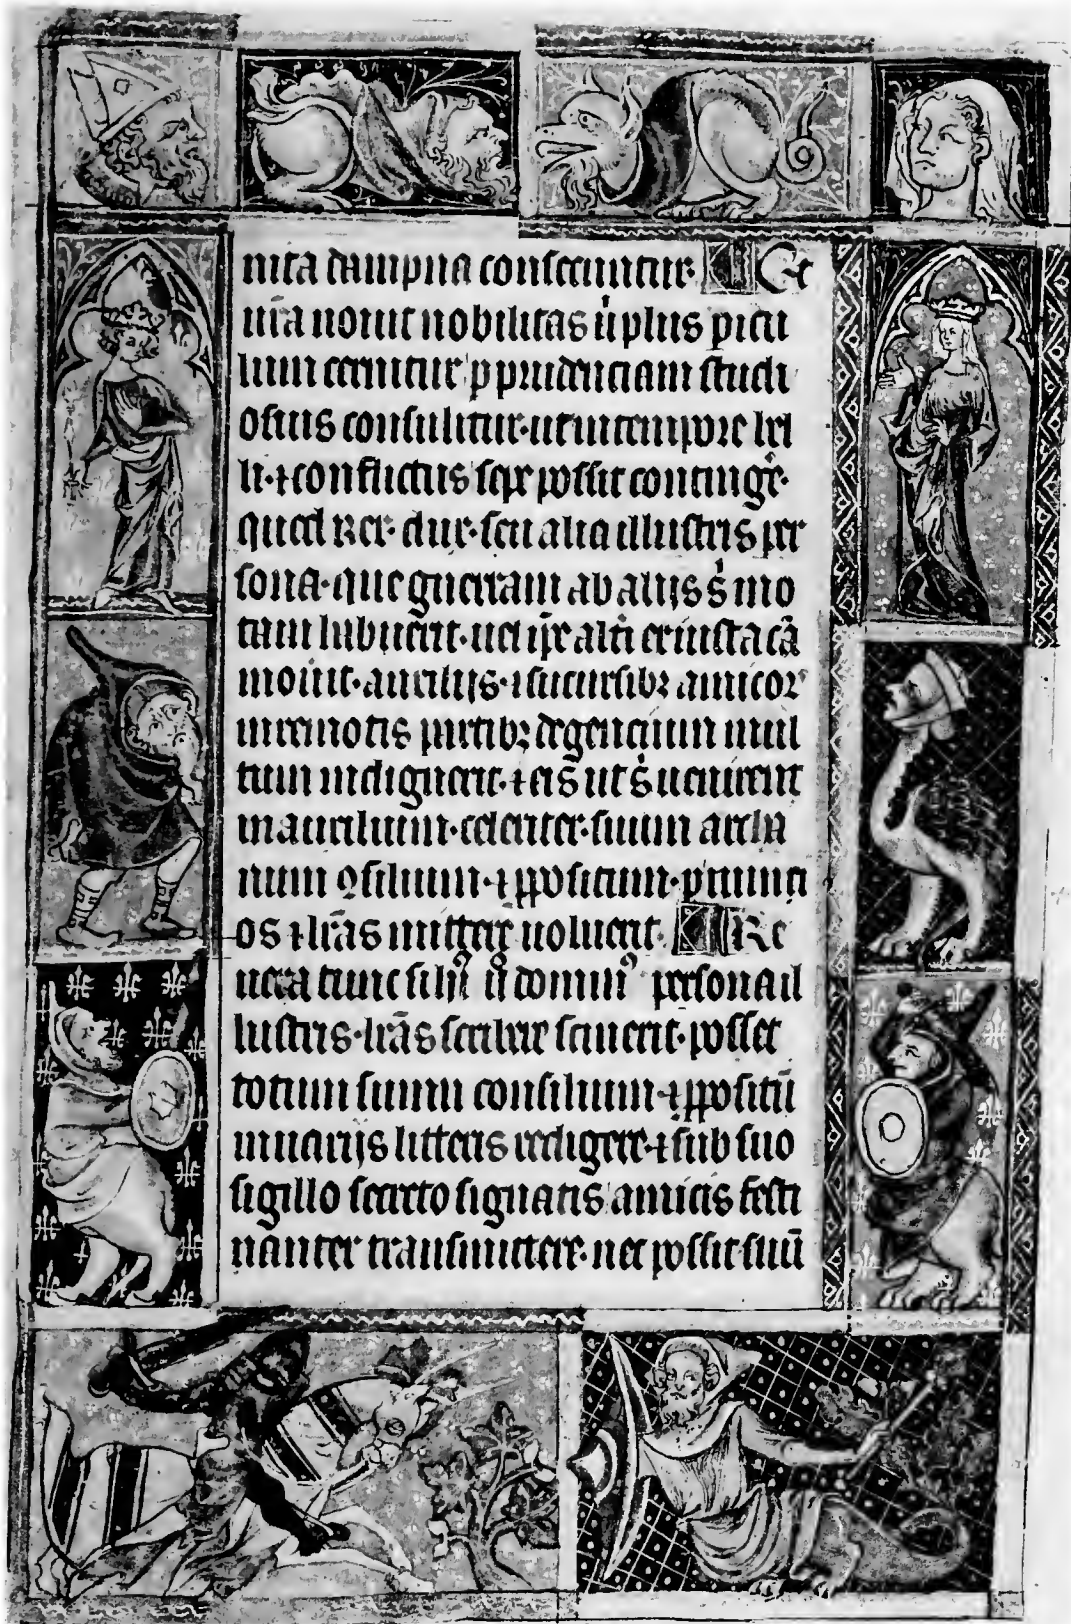 nita dampna consecuntur. Et
ur̄a nouit nobilitas ų plus picu
lum cernitur p prudenciam studi
osius consulitur. ut in tempore bel
li. ⁊ conflictus sepe possit continge᷒.
quod Rex. dux. seu alia illustris per
sona. que guerram ab alijs s mo
tam habuerit. uel ipse alt̄i ex iusta cā
mouit. auxilijs. ⁊ sucursibꝫ amicoꝝ
in remotis partibꝫ degencium mul
tum indiguerit. ⁊ eis ut s uenirent
in auxilium. celeriter. suum archa
num ꝯsilium. ⁊ ppositum. p nunci
os ⁊ lr̄as mittere uoluerit. Re
uera tunc si domin᷒ persona il
lustris. lr̄as scribere sciuerit. posset
totum suum consilium. ⁊ ppositū
in uarijs litteris redigere. ⁊ sub suo
sigillo secreto signatis amicis festi
nanter transmittere. nec possit suū